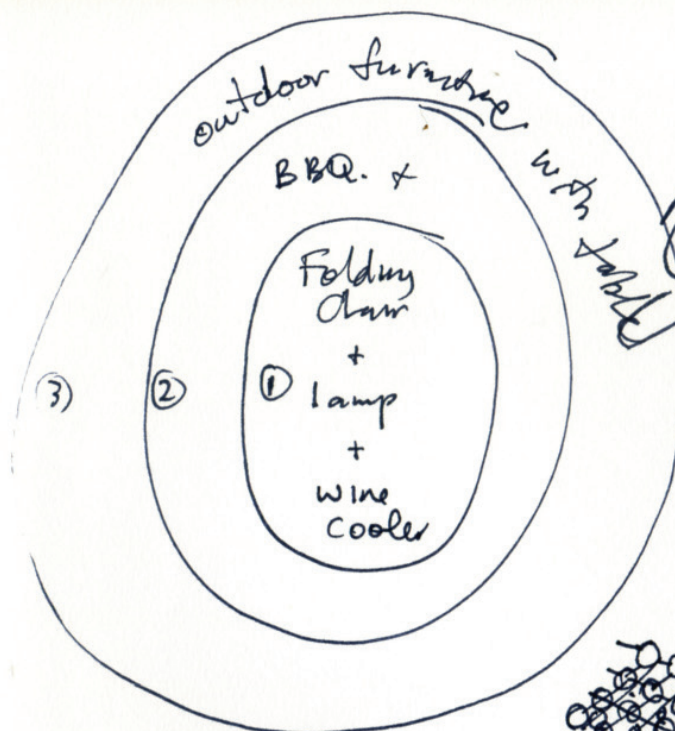 outdoor furniture with table
BBQ. +
Folding
Chair
+
① lamp
+
wine
cooler
②
③